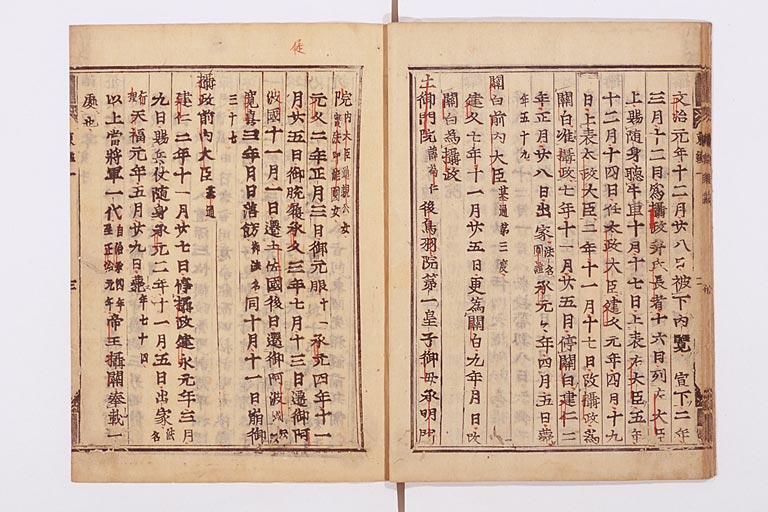 文治元年十二月廿八日被下内覽 宣下二年
三月十二日為攝政并氏長者十六日列左大臣
上賜随身聽牛車十月十七日上表右大臣五年
十二月十四日任太政大臣建久元年四月十九
日上表太政大臣三年十一月十七日改攝政為
關白准攝政七年十一月廿五日停關白建仁二
年正月廿八日出家法名圓證承元々年四月五日薨
年五十九
關白前内大臣基通第三度
建久七年十一月廿五日更為關白九年月日改
關白為攝政
土御門院諱為仁後鳥羽院第一皇子御母承明門
院
元久二年正月三日御元服十一承元四年十一
月廿五日御脱屣承久三年七月十三日遷御阿
波國十月一日遷土佐國後日還御阿波國
寛喜三年月日落餝御法名同十月十一日崩御
三十七
攝政前内大臣基通
建仁二年十一月廿七日停攝政建永元年三月
九日賜兵仗随身承元二年十一月五日出家法名
行理天福元年五月廿九日薨年七十四
以上當將軍一代自治承四年至正治元年帝王攝關奉載一
處也